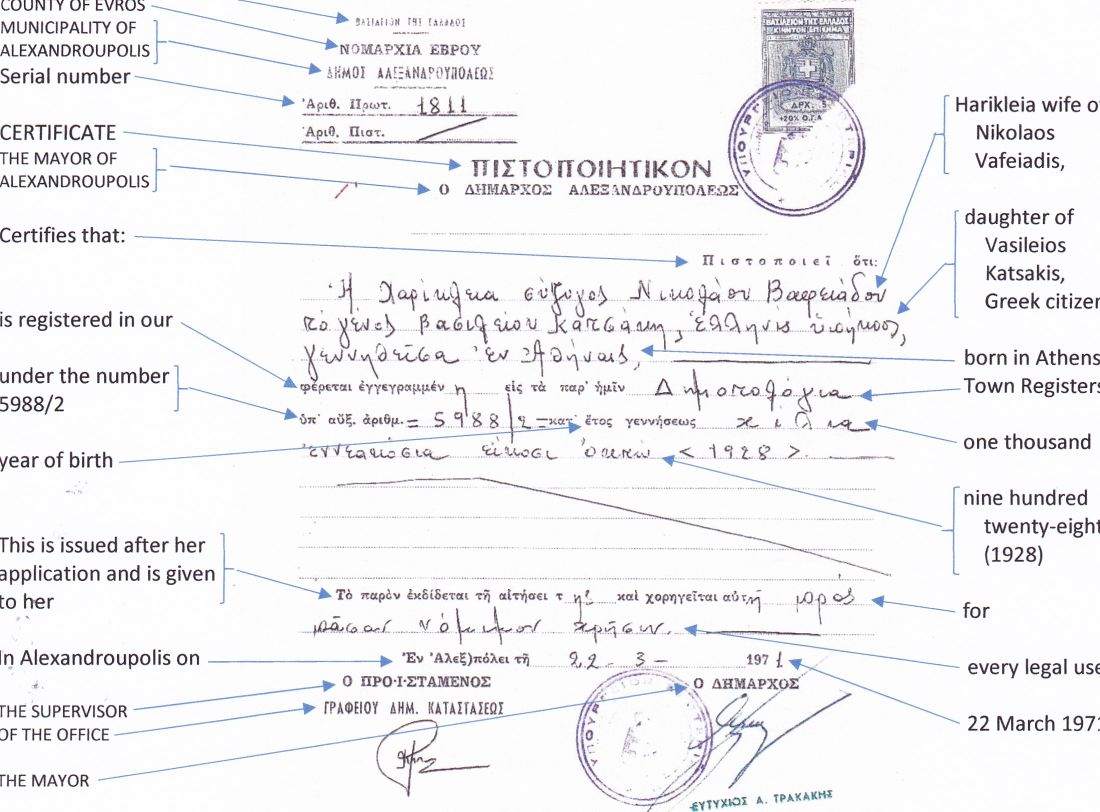 COUNTY OF EVROS
MUNICIPALITY OF
ALEXANDROUPOLIS
Serial number
CERTIFICATE
THE MAYOR OF
ALEXANDROUPOLIS
Certifies that:
is registered in our
under the number
5988/2
year of birth
This is issued after her
application and is given
to her
In Alexandroupolis on
THE SUPERVISOR
OF THE OFFICE
THE MAYOR
ΒΑΣΙΛΕΙΟΝ ΤΗΣ ΕΛΛΑΔΟΣ
ΝΟΜΑΡΧΙΑ ΕΒΡΟΥ
ΔΗΜΟΣ ΑΛΕΞΑΝΔΡΟΥΠΟΛΕΩΣ
Ἀριθ. Πρωτ. 1811
Ἀριθ. Πιστ.
ΒΑΣΙΛΕΙΟΝ ΤΗΣ ΕΛΛΑΔΟΣ
ΚΙΝΗΤΟΝ ΕΠΙΣΗΜΑ
ΔΡΧ. 5
+20% Ο.Γ.Α
ΠΙΣΤΟΠΟΙΗΤΙΚΟΝ
Ο ΔΗΜΑΡΧΟΣ ΑΛΕΞΑΝΔΡΟΥΠΟΛΕΩΣ
Πιστοποιεῖ ὅτι:
Ἡ Χαρίκλεια σύζυγος Νικολάου Βαφειάδου
τό γένος Βασιλείου Κατσάκη, Ἑλληνίς ὑπήκοος,
γεννηθεῖσα ἐν Ἀθήναις,
φέρεται ἐγγεγραμμένη εἰς τὰ παρ' ἡμῖν Δημοτολόγια
ὑπ' αὔξ. ἀριθμ. = 5988/2 = κατ' ἔτος γεννήσεως χίλια
ἐννεακόσια εἴκοσι ὀκτώ < 1928 >.
Τὸ παρὸν ἐκδίδεται τῇ αἰτήσει της καὶ χορηγεῖται αὐτῇ πρός
πᾶσαν νόμιμον χρῆσιν.
Ἐν Ἀλεξ)πόλει τῇ 22 - 3 - 1971
Ο ΠΡΟ·Ι·ΣΤΑΜΕΝΟΣ
ΓΡΑΦΕΙΟΥ ΔΗΜ. ΚΑΤΑΣΤΑΣΕΩΣ
Ο ΔΗΜΑΡΧΟΣ
ΕΥΤΥΧΙΟΣ Α. ΤΡΑΚΑΚΗΣ
Harikleia wife of
Nikolaos
Vafeiadis,
daughter of
Vasileios
Katsakis,
Greek citizen
born in Athens
Town Registers
one thousand
nine hundred
twenty-eight
(1928)
for
every legal use
22 March 1971